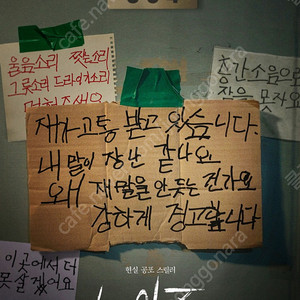 울음소리 짯논소리
그릇소리 드라이기소리
멈춰주세요
층간소음으로
잠을 못자요
제가 고통 받고 있습니다.
내 말이 장난 같나요
왜 제 말을 안 듣는 건가요
강하게 경고합니다
이 곳에서 더
못살겠어요
현실 공포 스릴러
노이즈